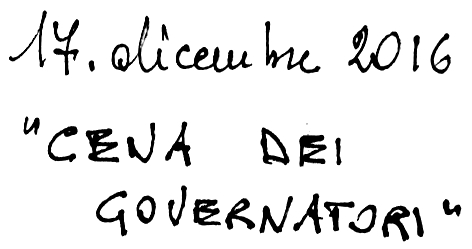 17. dicembre 2016
"CENA DEI
GOVERNATORI"